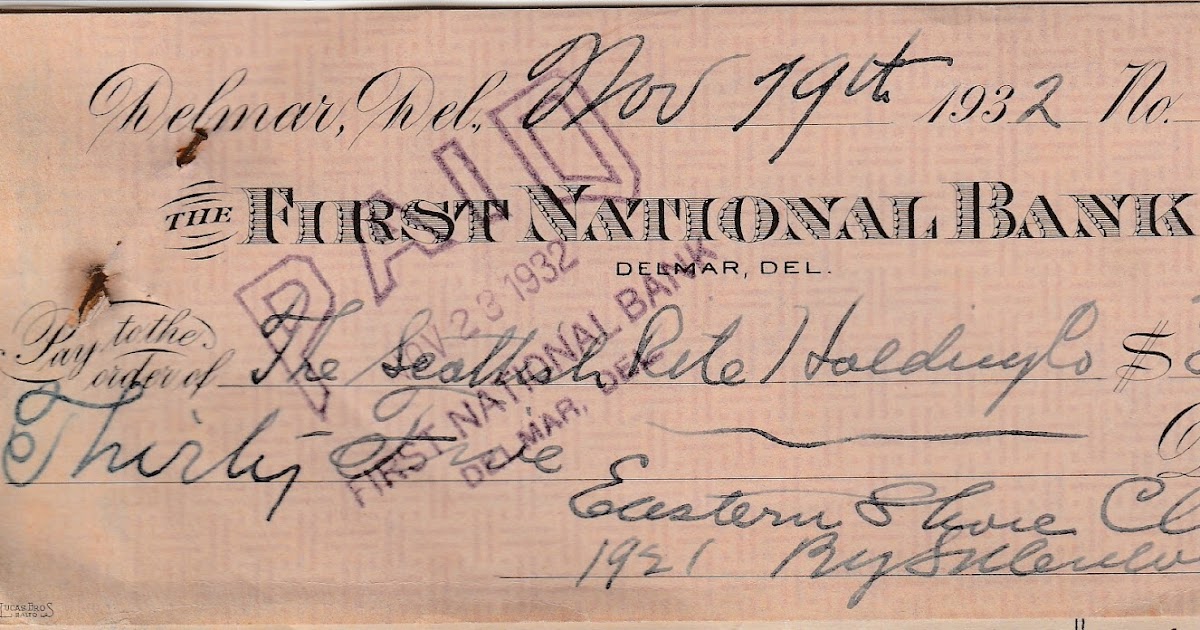 Delmar, Del., Nov 19th 1932 No.
THE FIRST NATIONAL BANK
DELMAR, DEL.
PAID
NOV 23 1932
FIRST NATIONAL BANK
DELMAR, DEL.
Pay to the order of The Scottish Rite Holding Co $
Thirty Five
Eastern Shore Cl
1921 By
LUCAS BROS
BALTO